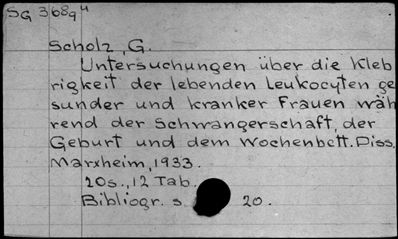 SG 368g u
Scholz, G.
Untersuchungen über die Kleb
rigkeit der lebenden Leukocyten ge
sunder und kranker Frauen wäh
rend der Schwangerschaft, der
Geburt und dem Wochenbett. Diss.
Marxheim, 1933.
20s., 12 Tab.
Bibliogr. s. 20.